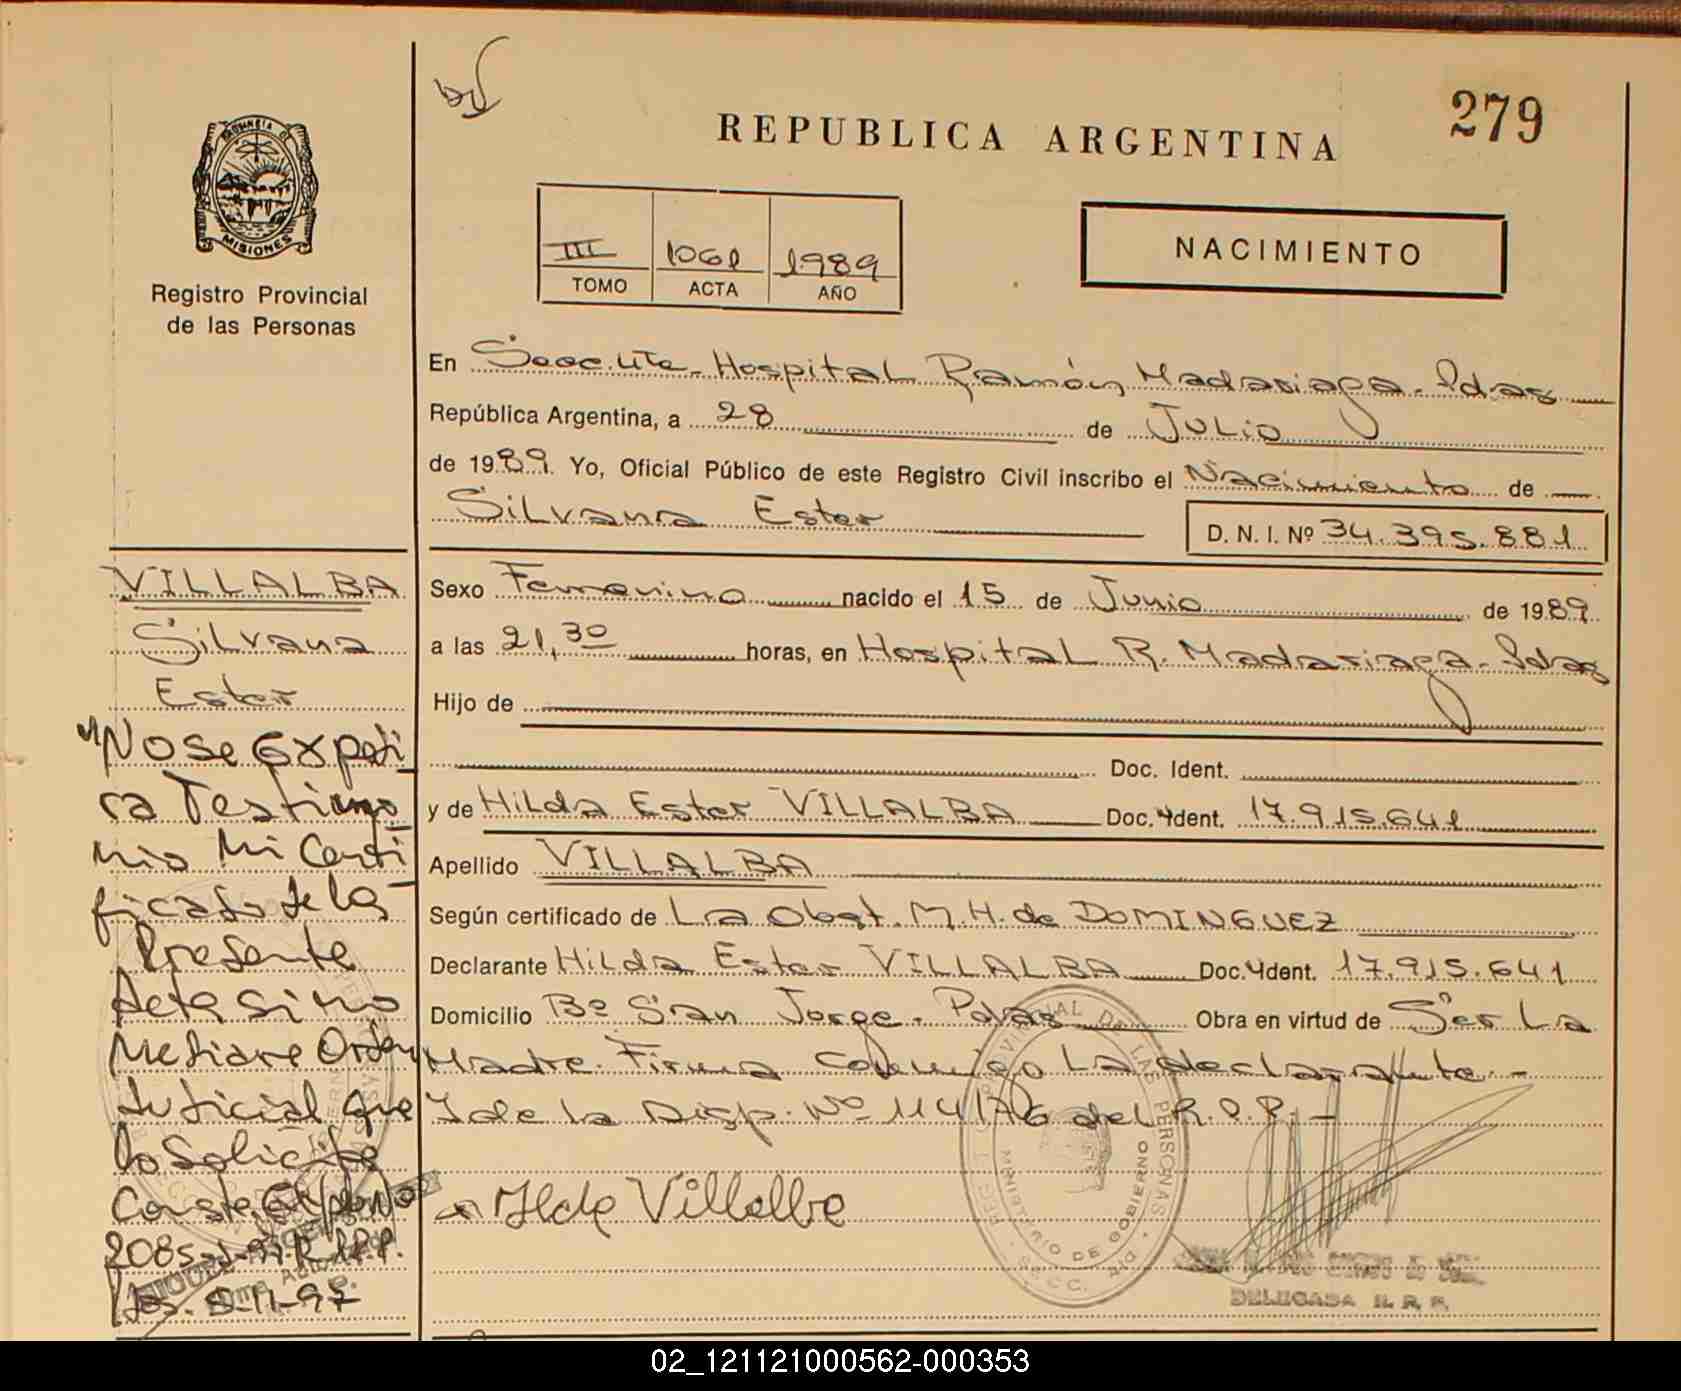 279
REPUBLICA ARGENTINA
PROVINCIA DE
MISIONES
Registro Provincial
de las Personas
III 1061 1989
TOMO ACTA AÑO
NACIMIENTO
En Secc. Hospital Ramón Madariaga. Pdas
República Argentina, a 28 de Julio
de 1989. Yo, Oficial Público de este Registro Civil inscribo el Nacimiento de
Silvana Ester
D. N. I. Nº 34.395.881
Sexo Femenino nacido el 15 de Junio de 1989.
a las 21,30 horas, en Hospital R. Madariaga. Pdas
Hijo de
Doc. Ident.
y de Hilda Ester VILLALBA Doc. Ident. 17.915.641
Apellido VILLALBA
Según certificado de La Obst. M. H. de DOMINGUEZ
Declarante Hilda Ester VILLALBA Doc. Ident. 17.915.641
Domicilio Bº San Jorge. Pdas Obra en virtud de Ser La
Madre. Firma conmigo La declarante.-
de la Disp. Nº 114/76 del R.P.P.-
Hilda Villalba
DELEGADA R. R. P.
VILLALBA
Silvana
Ester
"No se expedi
ra Testimo
nio Ni Certi
ficado de la
Presente
Acta si no
Mediare Orden
Judicial que
lo Solicite
Conste. Expte Nº
2085-J-97-R.P.P.
Pdas. 5-11-97
02_121121000562-000353